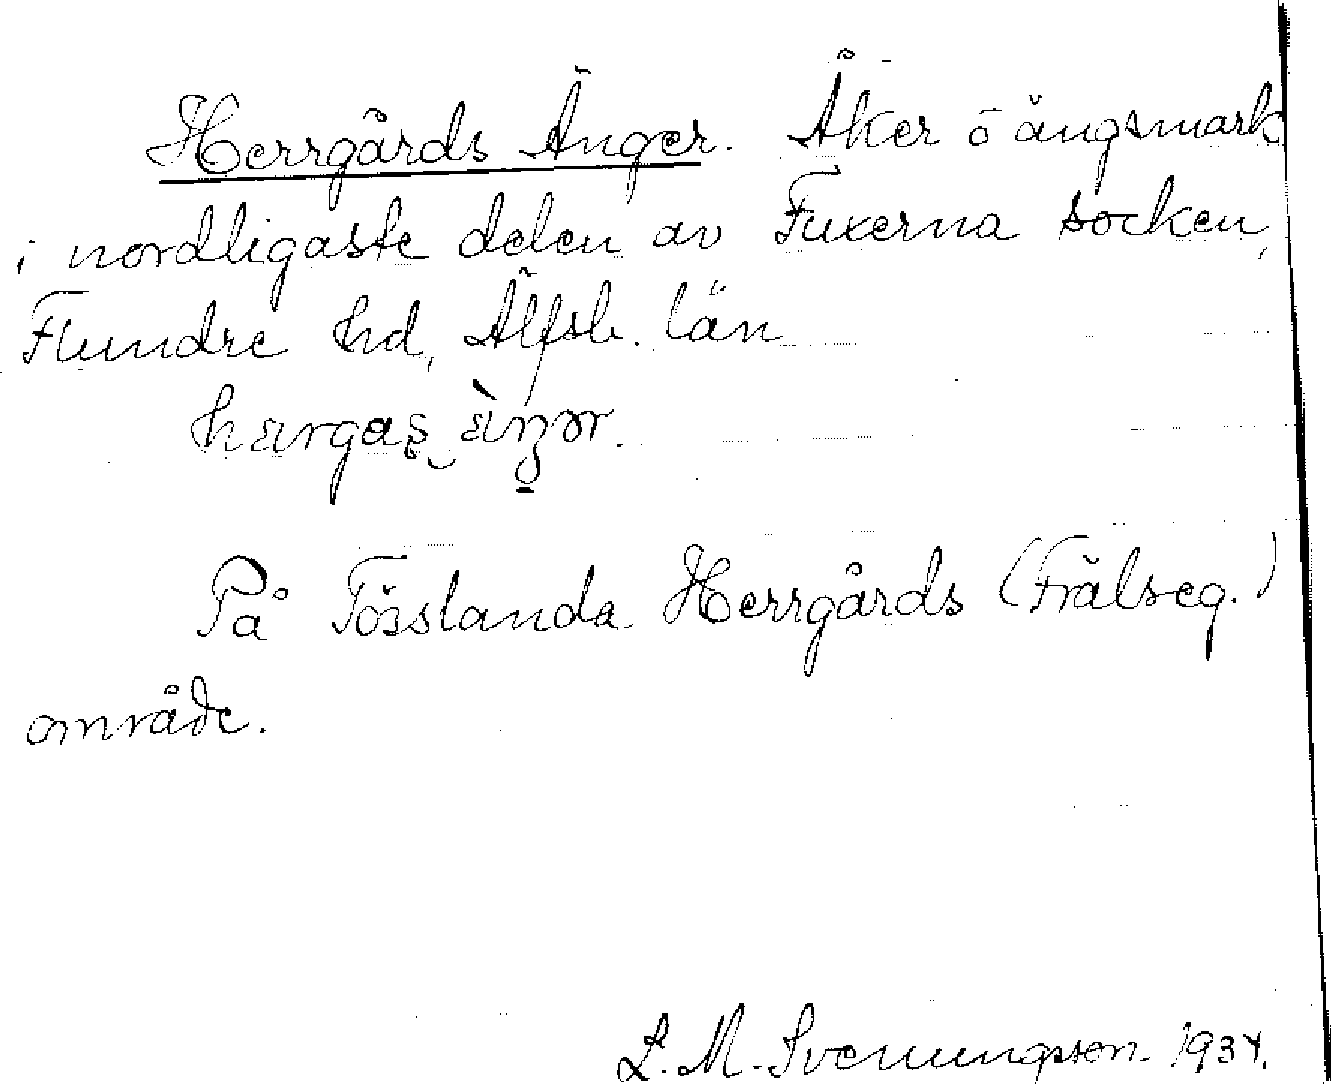 Herrgårds Änger. Åker o ängsmark
i nordligaste delen av Fuxerna socken,
Flundre hd, Älfsb. län
På Tösslanda Herrgårds (Frälseg.)
område.
L. M. Svenungsson. 1934.